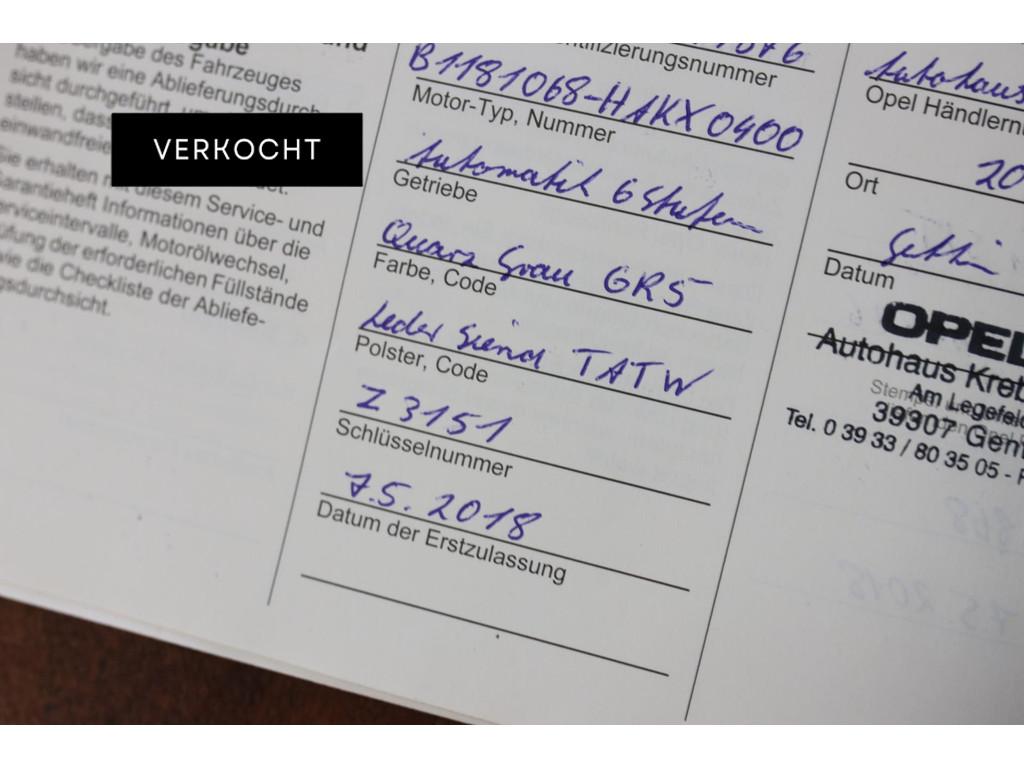 rgabe des Fahrzeuges
haben wir eine Ablieferungsdurch
sicht durchgeführt, um
stellen, dass
einwandfreie
VERKOCHT
Sie erhalten mit diesem Service- und
Garantieheft Informationen über die
erviceintervalle, Motorölwechsel,
üfung der erforderlichen Füllstände
wie die Checkliste der Abliefe-
gsdurchsicht.
ntifizierungsnummer
B1181068-HAKX0400
Motor-Typ, Nummer
Automatik 6 Stufen
Getriebe
Quarz Grau GR5
Farbe, Code
Leder Siena TATW
Polster, Code
Z 3151
Schlüsselnummer
7.5.2018
Datum der Erstzulassung
Autohaus
Opel Händlern
20
Ort
Datum
OPEL
Autohaus Kreb
Am Legefeld
39307 Gen
Tel. 0 39 33 / 80 35 05 - F